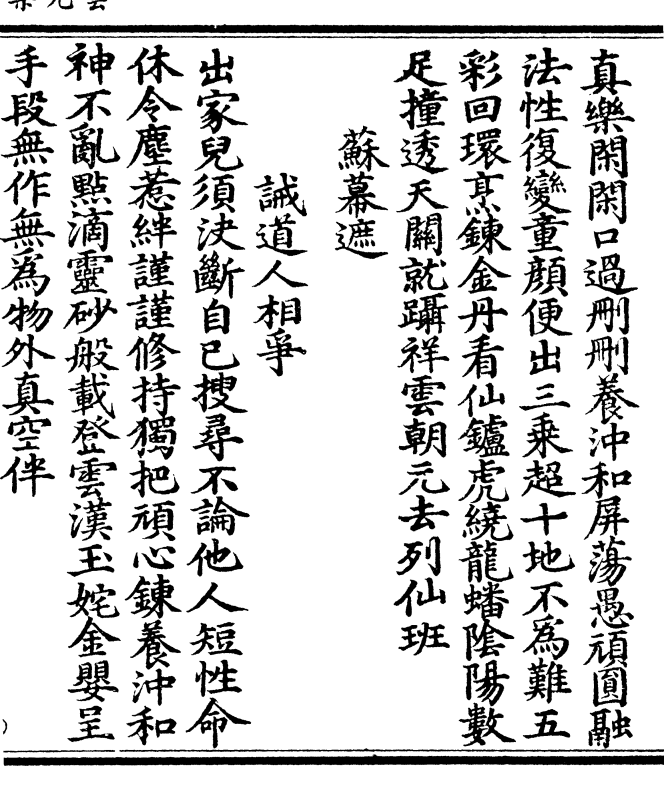 真樂閑閑口過刪刪養沖和屏蕩愚頑圓融
法性復變童顏便出三乘超十地不為難五
彩回環烹鍊金丹看仙鑪虎繞龍蟠陰陽數
足撞透天關就躡祥雲朝元去列仙班
蘇幕遮
誡道人相爭
出家兒須決斷自已搜尋不論他人短性命
休令塵惹絆謹謹修持獨把頑心鍊養沖和
神不亂點滴靈砂般載登雲漢玉姹金嬰呈
手段無作無為物外真空伴